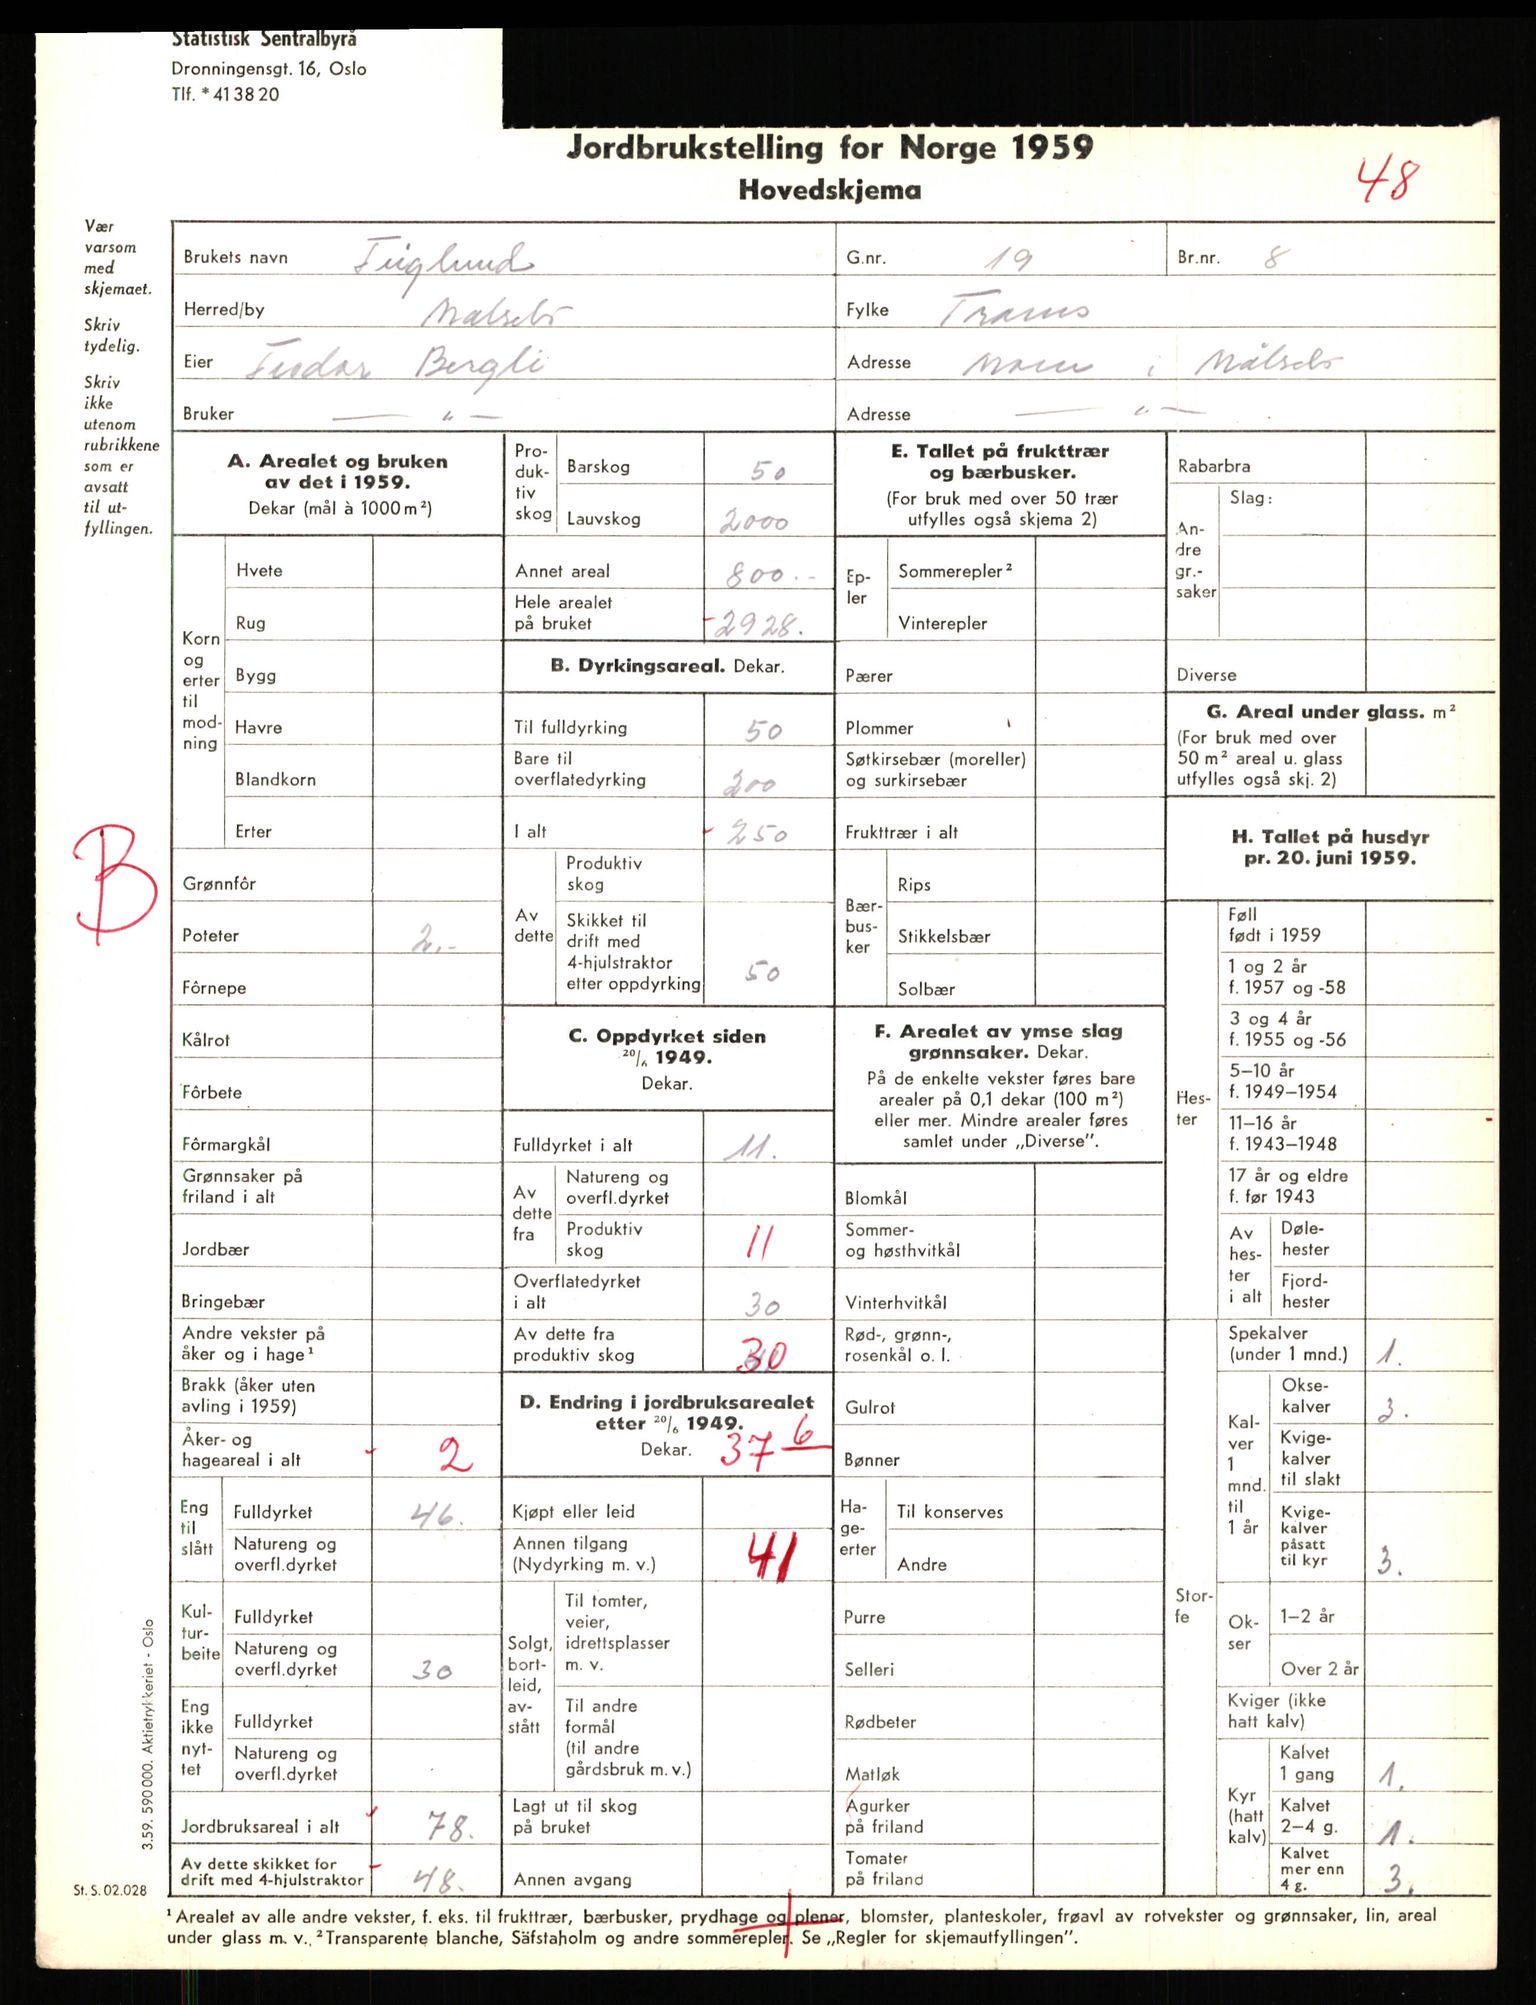 Statistisk Sentralbyrå
Dronningensgt. 16, Oslo
Tlf. * 41 38 20
Jordbrukstelling for Norge 1959
Hovedskjema
48
Vær
varsom
med
skjemaet.
Skriv
tydelig.
Skriv
ikke
utenom
rubrikkene
som er
avsatt
til ut-
fyllingen.
Brukets navn Fuglund G.nr. 19 Br.nr. 8
Herred/by Målselv Fylke Troms
Eier Bergli Adresse Moen i Målselv
Bruker — " — Adresse — " —
A. Arealet og bruken
av det i 1959.
Dekar (mål à 1000 m²)
Korn
og
erter
til
mod-
ning
Hvete
Rug
Bygg
Havre
Blandkorn
Erter
B
Grønnfôr
Poteter 2.-
Fôrnepe
Kålrot
Fôrbete
Fôrmargkål
Grønnsaker på
friland i alt
Jordbær
Bringebær
Andre vekster på
åker og i hage¹
Brakk (åker uten
avling i 1959)
Åker- og
hageareal i alt 2
Eng
til
slått
Fulldyrket 46.
Natureng og
overfl.dyrket
Kul-
tur-
beite
Fulldyrket
Natureng og
overfl.dyrket 30
Eng
ikke
nyt-
tet
Fulldyrket
Natureng og
overfl.dyrket
Jordbruksareal i alt 78.
Av dette skikket for
drift med 4-hjulstraktor 48.
Pro-
duk-
tiv
skog
Barskog 50
Lauvskog 2000
Annet areal 800.-
Hele arealet
på bruket 2928.
B. Dyrkingsareal. Dekar.
Til fulldyrking 50
Bare til
overflatedyrking 200
I alt 250
Av
dette
Produktiv
skog
Skikket til
drift med
4-hjulstraktor
etter oppdyrking 50
C. Oppdyrket siden
20/6 1949.
Dekar.
Fulldyrket i alt 11.
Av
dette
fra
Natureng og
overfl.dyrket
Produktiv
skog 11
Overflatedyrket
i alt 30
Av dette fra
produktiv skog 30
D. Endring i jordbruksarealet
etter 20/6 1949.
Dekar. 37 6
Kjøpt eller leid
Annen tilgang
(Nydyrking m. v.) 41
Solgt,
bort-
leid,
av-
stått
Til tomter,
veier,
idrettsplasser
m. v.
Til andre
formål
(til andre
gårdsbruk m. v.)
Lagt ut til skog
på bruket
Annen avgang
E. Tallet på frukttrær
og bærbusker.
(For bruk med over 50 trær
utfylles også skjema 2)
Ep-
ler
Sommerepler²
Vinterepler
Pærer
Plommer
Søtkirsebær (moreller)
og surkirsebær
Frukttrær i alt
Bær-
bus-
ker
Rips
Stikkelsbær
Solbær
F. Arealet av ymse slag
grønnsaker. Dekar.
På de enkelte vekster føres bare
arealer på 0,1 dekar (100 m²)
eller mer. Mindre arealer føres
samlet under „Diverse”.
Blomkål
Sommer-
og høsthvitkål
Vinterhvitkål
Rød-, grønn-,
rosenkål o. l.
Gulrot
Bønner
Ha-
ge-
erter
Til konserves
Andre
Purre
Selleri
Rødbeter
Matløk
Agurker
på friland
Tomater
på friland
Rabarbra
An-
dre
gr.-
saker
Slag:
Diverse
G. Areal under glass. m²
(For bruk med over
50 m² areal u. glass
utfylles også skj. 2)
H. Tallet på husdyr
pr. 20. juni 1959.
Hes-
ter
Føll
født i 1959
1 og 2 år
f. 1957 og -58
3 og 4 år
f. 1955 og -56
5–10 år
f. 1949–1954
11–16 år
f. 1943–1948
17 år og eldre
f. før 1943
Av
hes-
ter
i alt
Døle-
hester
Fjord-
hester
Stor-
fe
Spekalver
(under 1 mnd.) 1.
Kal-
ver
1
mnd.
til
1 år
Okse-
kalver 3.
Kvige-
kalver
til slakt
Kvige-
kalver
påsatt
til kyr 3.
Ok-
ser
1–2 år
Over 2 år
Kviger (ikke
hatt kalv)
Kyr
(hatt
kalv)
Kalvet
1 gang 1.
Kalvet
2–4 g. 1.
Kalvet
mer enn
4 g. 3.
3.59. 590 000. Aktietrykkeriet - Oslo
St. S. 02.028
¹ Arealet av alle andre vekster, f. eks. til frukttrær, bærbusker, prydhage og plener, blomster, planteskoler, frøavl av rotvekster og grønnsaker, lin, areal
under glass m. v. ² Transparente blanche, Säfstaholm og andre sommerepler. Se „Regler for skjemautfyllingen”.